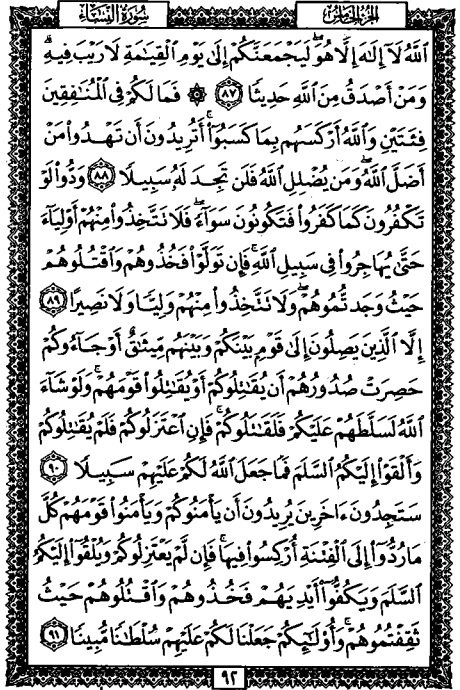 سورة النساء الجزء الخامس
ٱللَّهُ لَآ إِلَٰهَ إِلَّا هُوَ ۚ لَيَجْمَعَنَّكُمْ إِلَىٰ يَوْمِ ٱلْقِيَٰمَةِ لَا رَيْبَ فِيهِ ۗ
وَمَنْ أَصْدَقُ مِنَ ٱللَّهِ حَدِيثًا ٨٧ ۞ فَمَا لَكُمْ فِى ٱلْمُنَٰفِقِينَ
فِئَتَيْنِ وَٱللَّهُ أَرْكَسَهُم بِمَا كَسَبُوٓا۟ ۚ أَتُرِيدُونَ أَن تَهْدُوا۟ مَنْ
أَضَلَّ ٱللَّهُ ۖ وَمَن يُضْلِلِ ٱللَّهُ فَلَن تَجِدَ لَهُۥ سَبِيلًا ٨٨ وَدُّوا۟ لَوْ
تَكْفُرُونَ كَمَا كَفَرُوا۟ فَتَكُونُونَ سَوَآءً ۖ فَلَا تَتَّخِذُوا۟ مِنْهُمْ أَوْلِيَآءَ
حَتَّىٰ يُهَاجِرُوا۟ فِى سَبِيلِ ٱللَّهِ ۚ فَإِن تَوَلَّوْا۟ فَخُذُوهُمْ وَٱقْتُلُوهُمْ
حَيْثُ وَجَدتُّمُوهُمْ ۖ وَلَا تَتَّخِذُوا۟ مِنْهُمْ وَلِيًّا وَلَا نَصِيرًا ٨٩
إِلَّا ٱلَّذِينَ يَصِلُونَ إِلَىٰ قَوْمٍۭ بَيْنَكُمْ وَبَيْنَهُم مِّيثَٰقٌ أَوْ جَآءُوكُمْ
حَصِرَتْ صُدُورُهُمْ أَن يُقَٰتِلُوكُمْ أَوْ يُقَٰتِلُوا۟ قَوْمَهُمْ ۚ وَلَوْ شَآءَ
ٱللَّهُ لَسَلَّطَهُمْ عَلَيْكُمْ فَلَقَٰتَلُوكُمْ ۚ فَإِنِ ٱعْتَزَلُوكُمْ فَلَمْ يُقَٰتِلُوكُمْ
وَأَلْقَوْا۟ إِلَيْكُمُ ٱلسَّلَمَ فَمَا جَعَلَ ٱللَّهُ لَكُمْ عَلَيْهِمْ سَبِيلًا ٩٠
سَتَجِدُونَ ءَاخَرِينَ يُرِيدُونَ أَن يَأْمَنُوكُمْ وَيَأْمَنُوا۟ قَوْمَهُمْ كُلَّ
مَا رُدُّوٓا۟ إِلَى ٱلْفِتْنَةِ أُرْكِسُوا۟ فِيهَا ۚ فَإِن لَّمْ يَعْتَزِلُوكُمْ وَيُلْقُوٓا۟ إِلَيْكُمُ
ٱلسَّلَمَ وَيَكُفُّوٓا۟ أَيْدِيَهُمْ فَخُذُوهُمْ وَٱقْتُلُوهُمْ حَيْثُ
ثَقِفْتُمُوهُمْ ۚ وَأُو۟لَٰٓئِكُمْ جَعَلْنَا لَكُمْ عَلَيْهِمْ سُلْطَٰنًا مُّبِينًا ٩١
٩٢